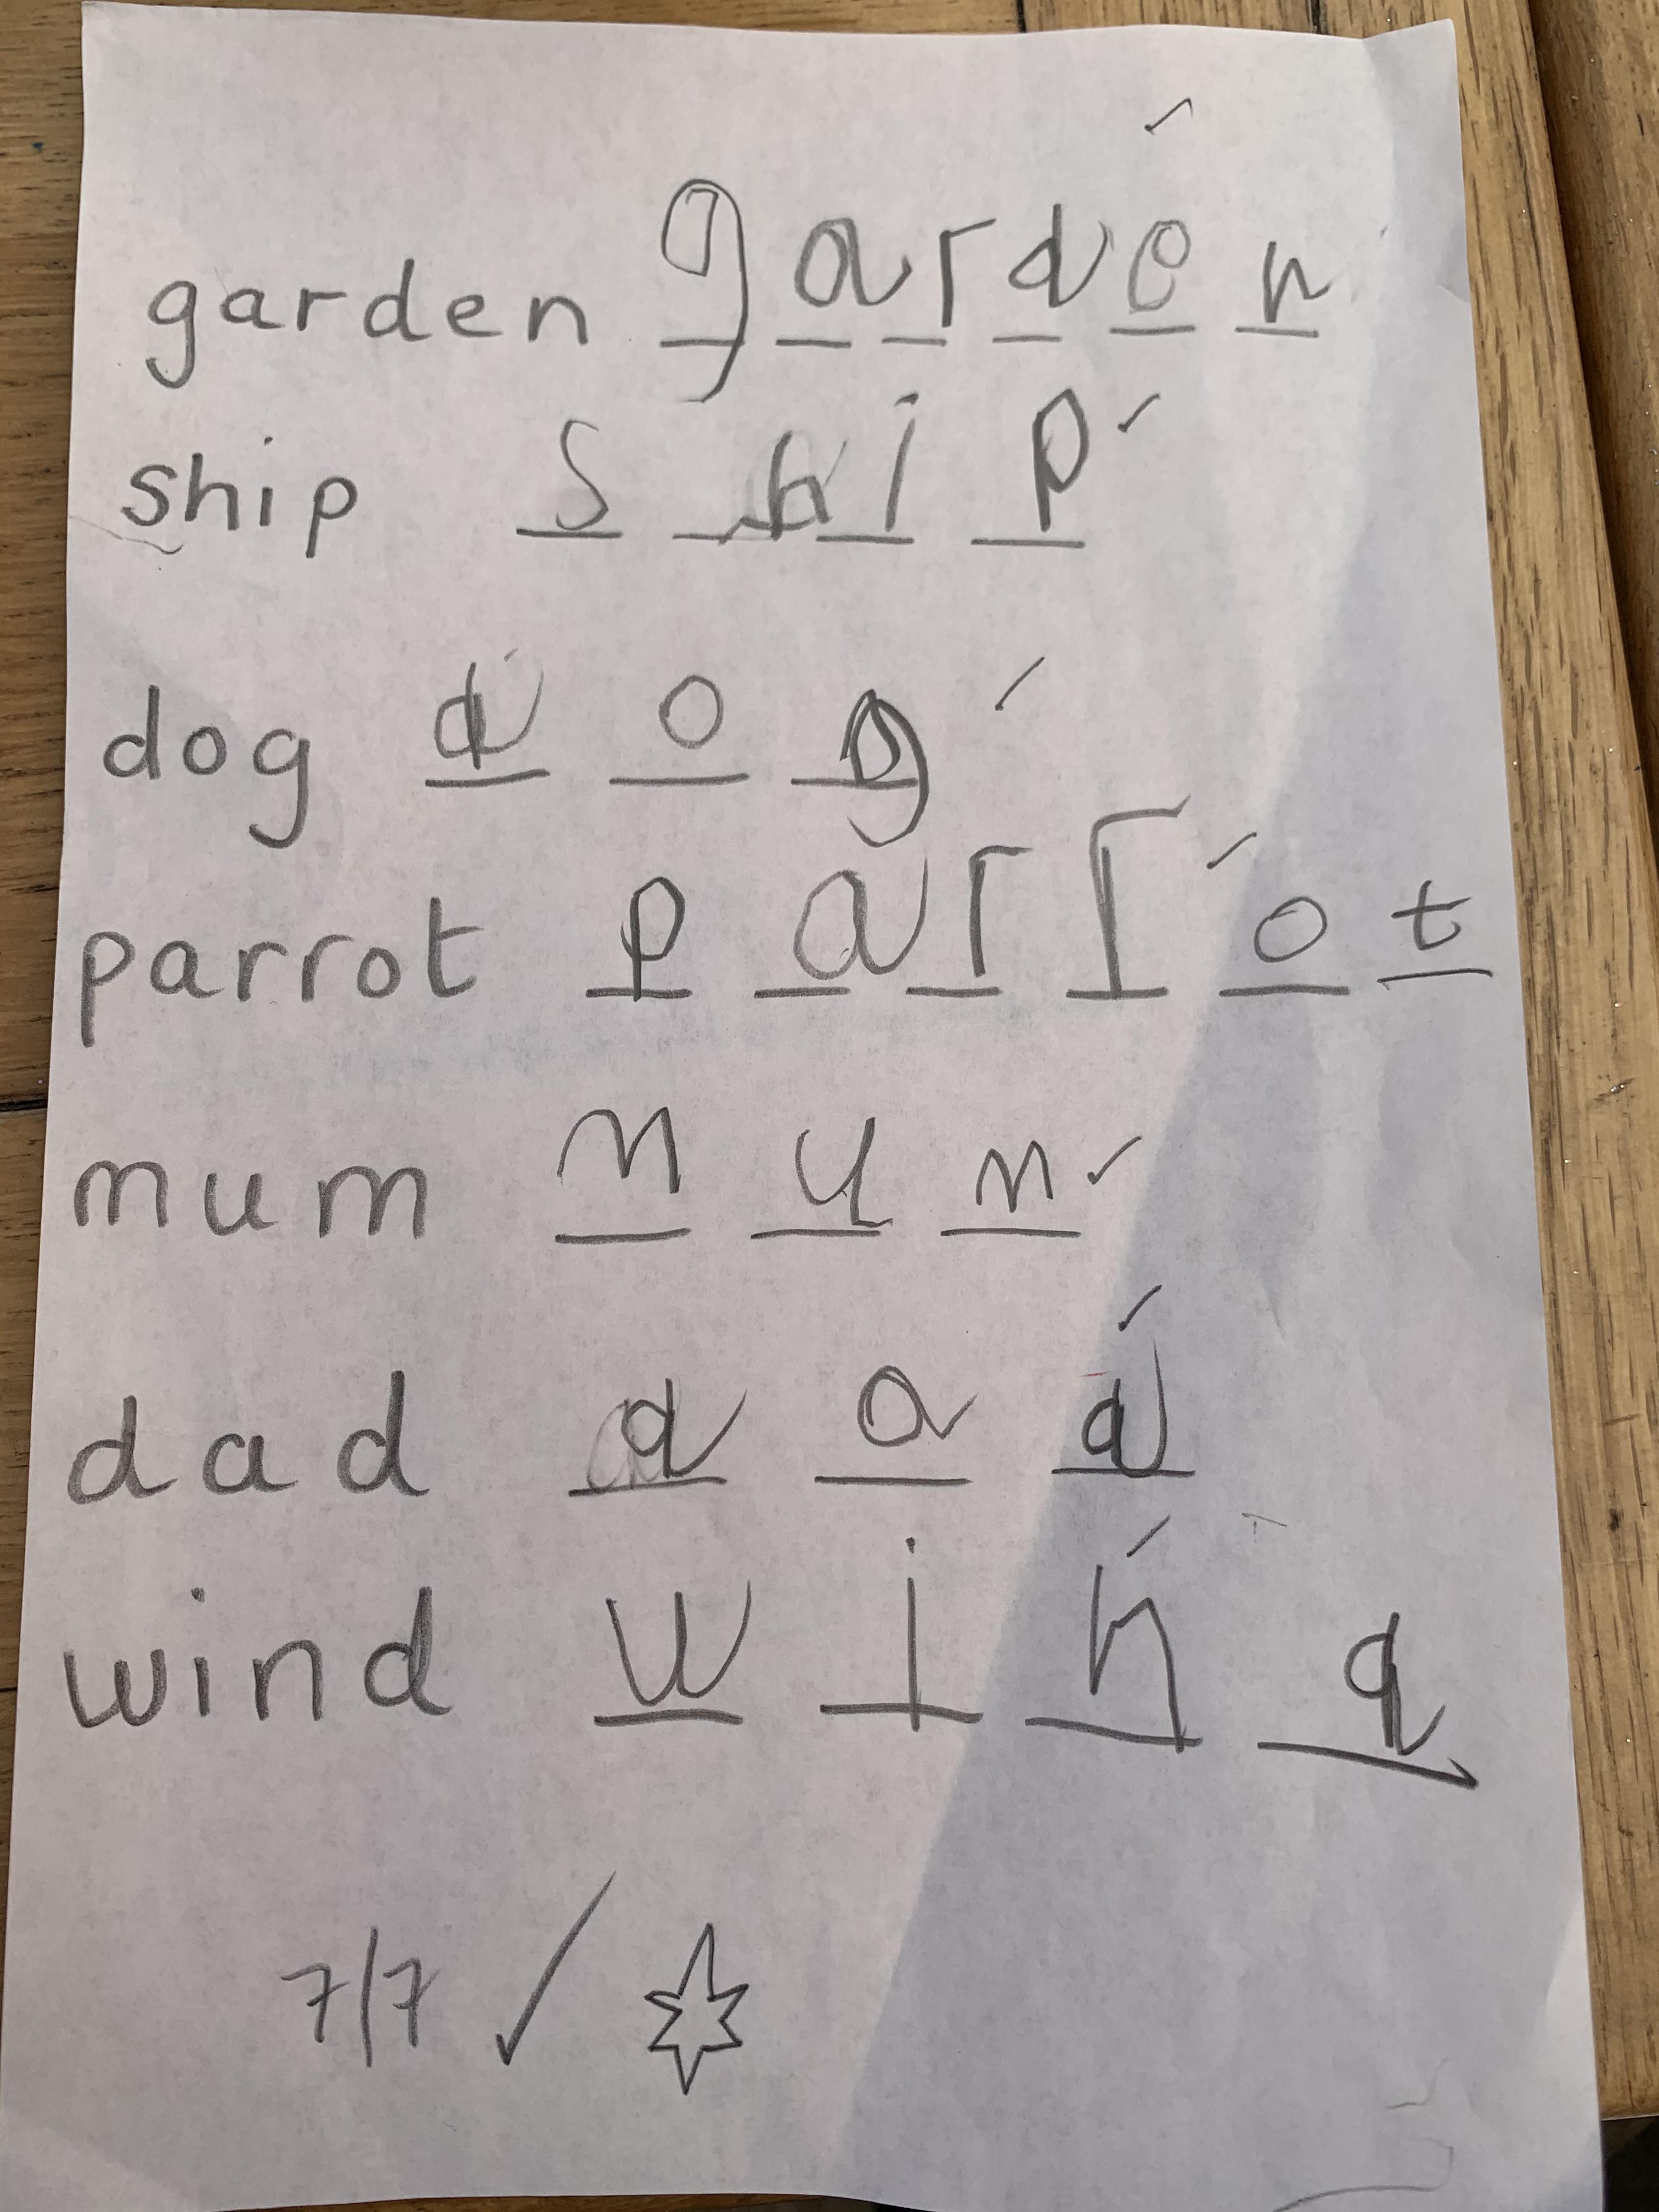 garden g a r d e n
ship s h i p
dog d o g
parrot p a r r o t
mum m u m
dad d a d
wind w i n d
7/7 ✓